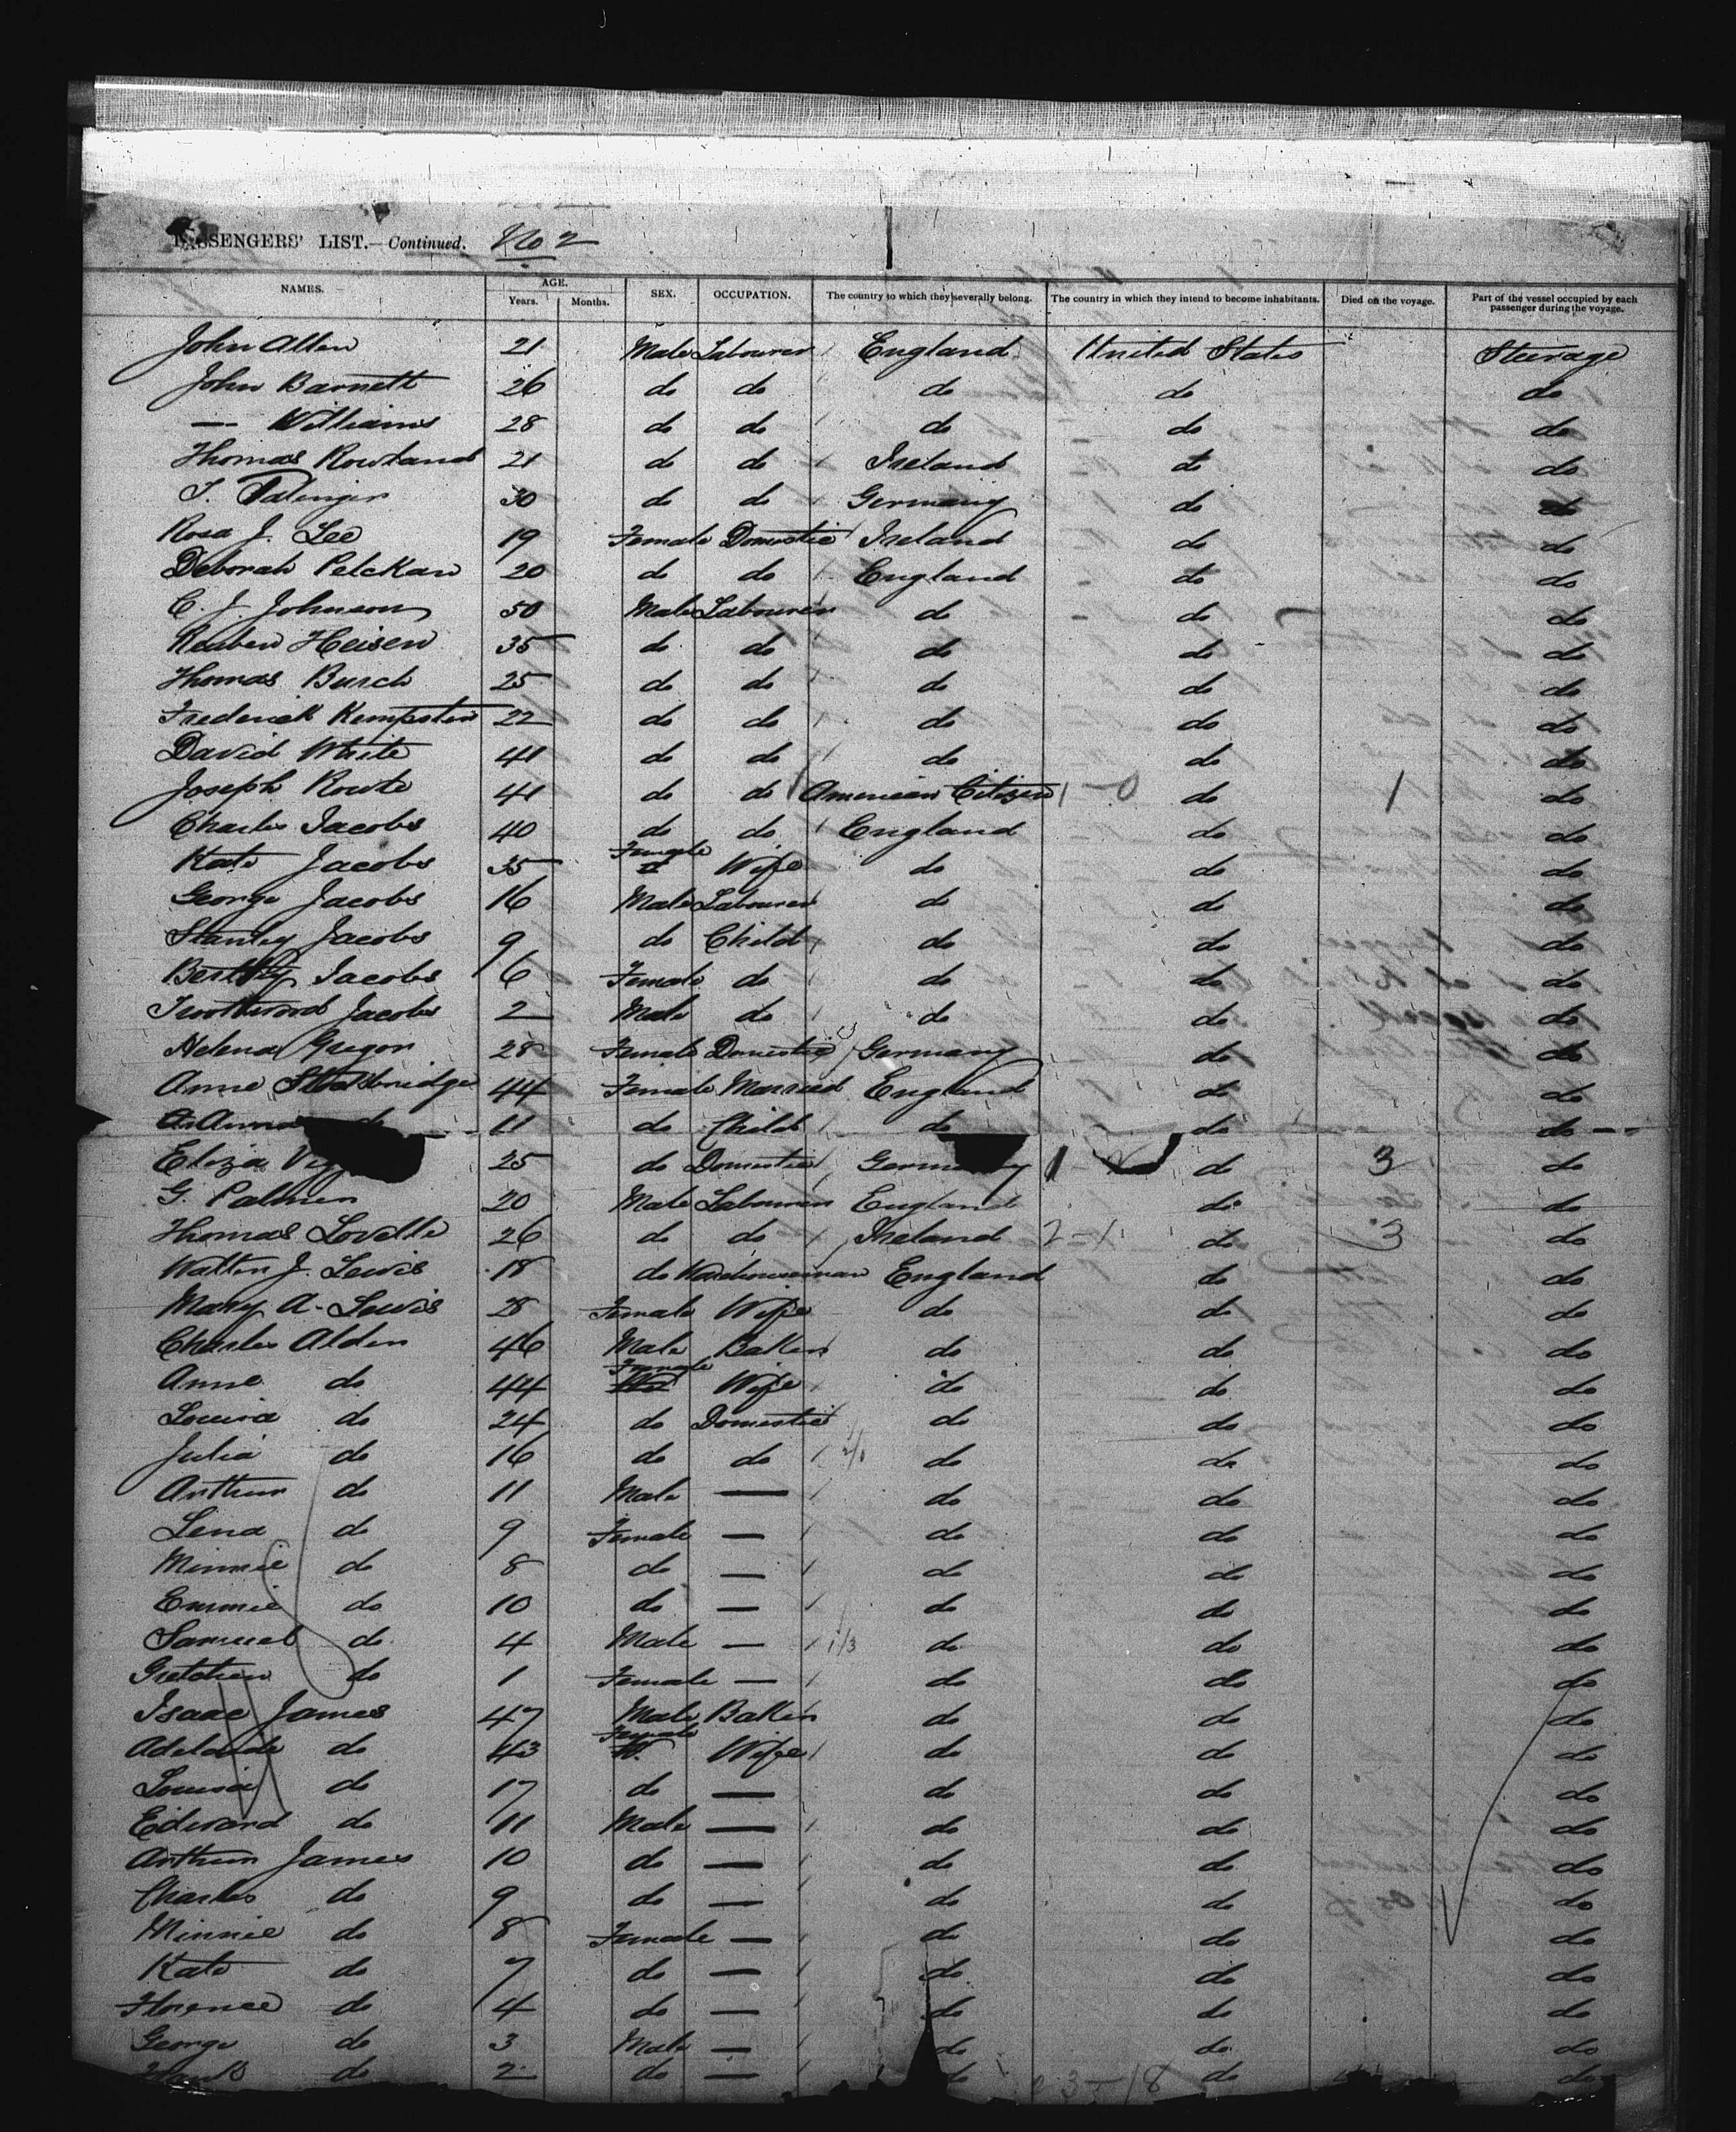 PASSENGERS' LIST.—Continued. No 2
NAMES. AGE. Years. Months. SEX. OCCUPATION. The country to which they severally belong. The country in which they intend to become inhabitants. Died on the voyage. Part of the vessel occupied by each passenger during the voyage.
John Allen 21 Male Labourer England United States Steerage
John Barnett 26 do do do do do
— Williams 28 do do do do do
Thomas Rowland 21 do do Ireland do do
J. 30 do do Germany do do
Rosa J. Lee 19 Female Domestic Ireland do do
Deborah Pelckan 20 do do England do do
C. J. Johnson 50 Male Labourer do do do
Reuben Heisen 35 do do do do do
Thomas Burch 25 do do do do do
Frederick Kempster 22 do do do do do
David White 41 do do do do do
Joseph Rowte 41 do do American Citizen 1-0 do 1 do
Charles Jacobs 40 do do England do do
Kate Jacobs 35 Female Wife do do do
George Jacobs 16 Male Labourer do do do
Stanley Jacobs 9 do Child do do do
Jacobs 6 Female do do do do
Jacobs 2 Male do do do do
Helena Gregor 28 Female Domestic Germany do do
Anne 44 Female Married England do do
Anna do 11 do Child do do do
Eliza 25 do Domestic Germany 1 do 3 do
G. Palmer 20 Male Labourer England do do
Thomas Lovelle 26 do do Ireland 2-1 do 3 do
Walter J. Lewis 18 do Warehouseman England do do
Mary A. Lewis 28 Female Wife do do do
Charles Alden 46 Male Baker do do do
Anne do 44 Female Wife do do do
Louisa do 24 do Domestic do do do
Julia do 16 do do 2/0 do do do
Arthur do 11 Male — do do do
Lena do 9 Female — do do do
Minnie do 8 do — do do do
Emmie do 10 do — do do do
Samuel do 4 Male — 1/3 do do do
Gretchen do 1 Female — do do do
Isaac James 47 Male Baker do do do
Adelaide do 43 Female Wife do do do
Louisa do 17 do — do do do
Edward do 11 Male — do do do
Arthur James 10 do — do do do
Charles do 9 do — do do do
Minnie do 8 Female — do do do
Kate do 7 do — do do do
Florence do 4 do — do do do
George do 3 Male — do do do
Frank do 2 do — do 3-18 do do